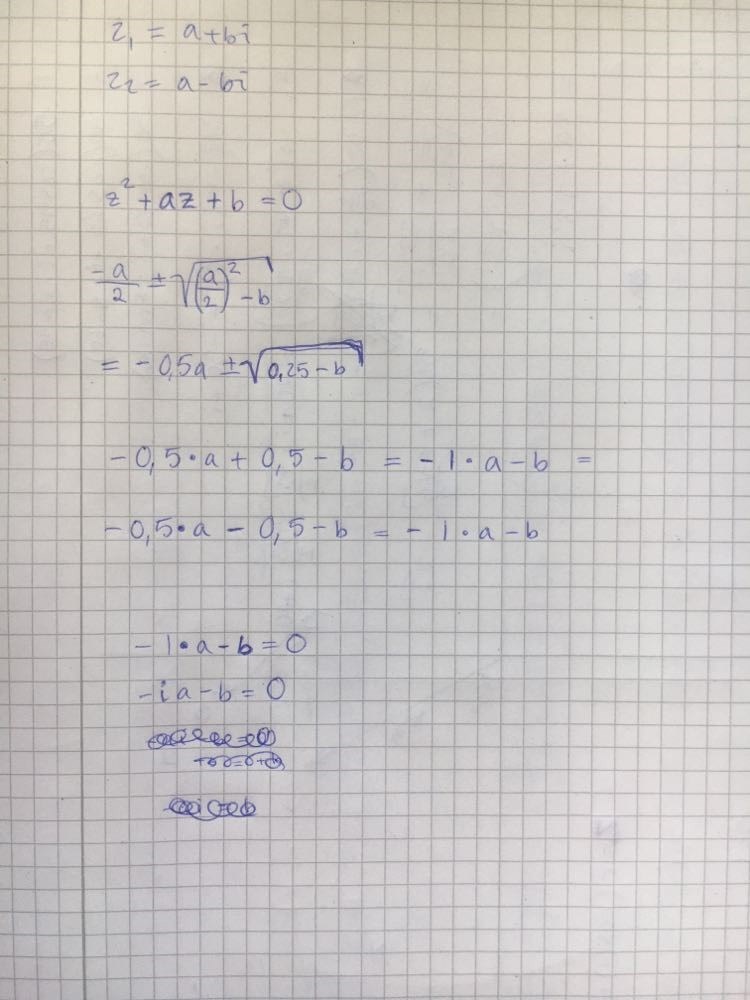 z₁ = a+bi
z₂ = a-bi
z² + az + b = 0
-a/2 ± √((a/2)² - b)
= -0,5a ± √(0,25-b)
-0,5·a + 0,5-b = -1·a-b =
-0,5·a - 0,5-b = -1·a-b
-1·a-b=0
-ia-b=0